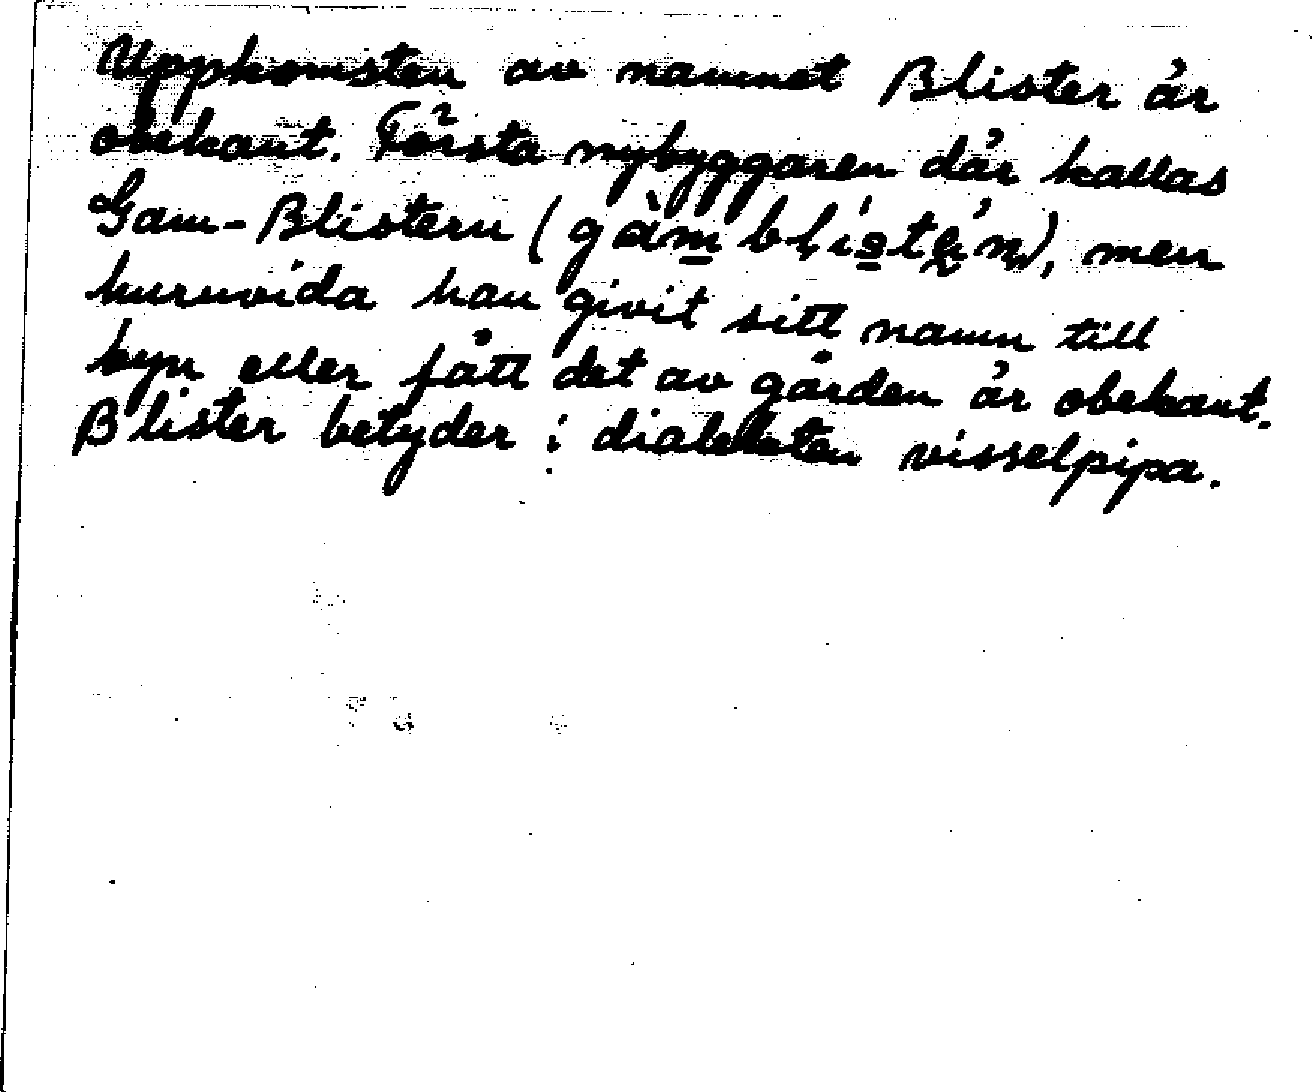 Uppkomsten av namnet Blister är
obekant. Första nybyggaren där kallas
Gam-Blistern (gàm blístə́n), men
huruvida han givit sitt namn till
byn eller fått det av gården är obekant.
Blister betyder i dialekten visselpipa.